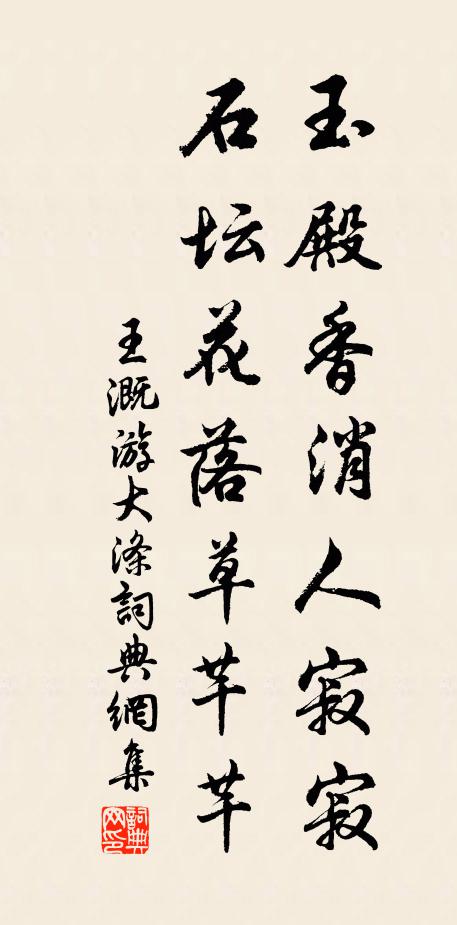 玉殿香消人寂寂
石坛花落草芊芊
王溉游大涤詞典網集
詞典网印